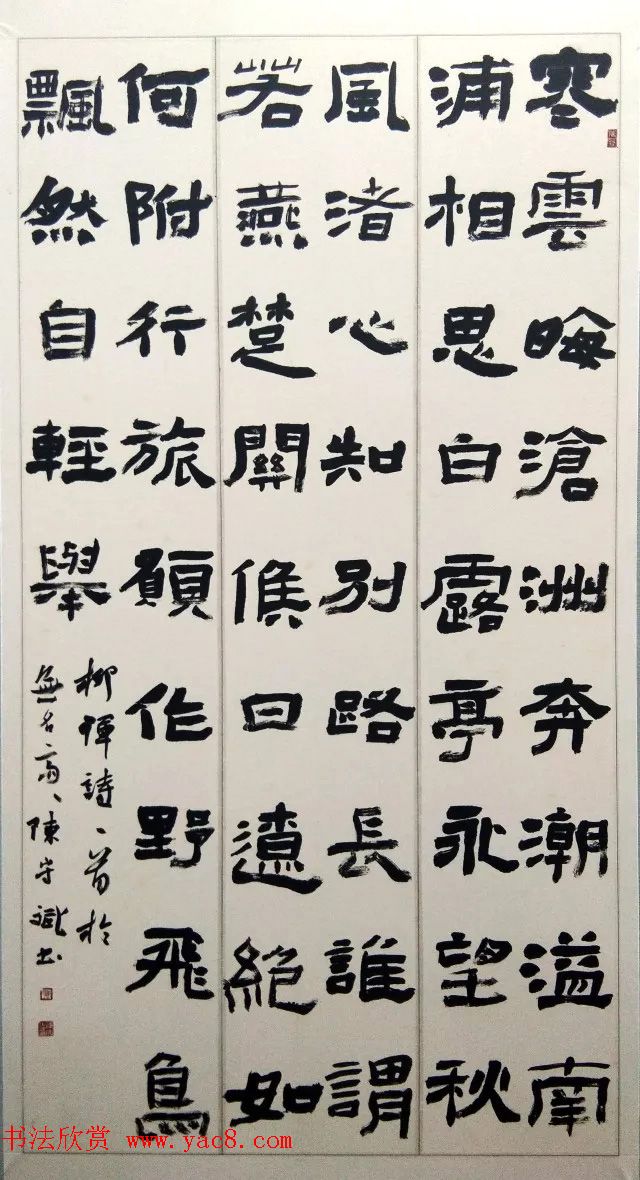 寒雲晦滄洲奔潮溢南
浦相思白露亭永望秋
風渚心知別路長誰謂
若燕楚關候日遼絕如
何附行旅願作野飛鳥
飄然自輕舉
柳惲詩一首於
無名齋陳守斌书
书法欣赏 www.yac8.com